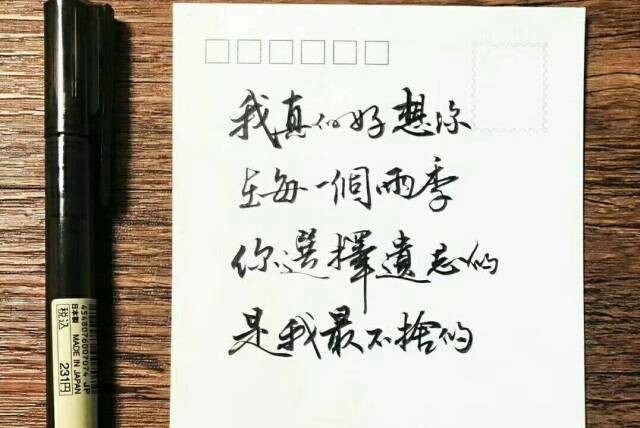 我真的好想你
在每一個雨季
你選擇遺忘的
是我最不捨的
税込
日本製
231円
MADE IN JAPAN
4548076007074